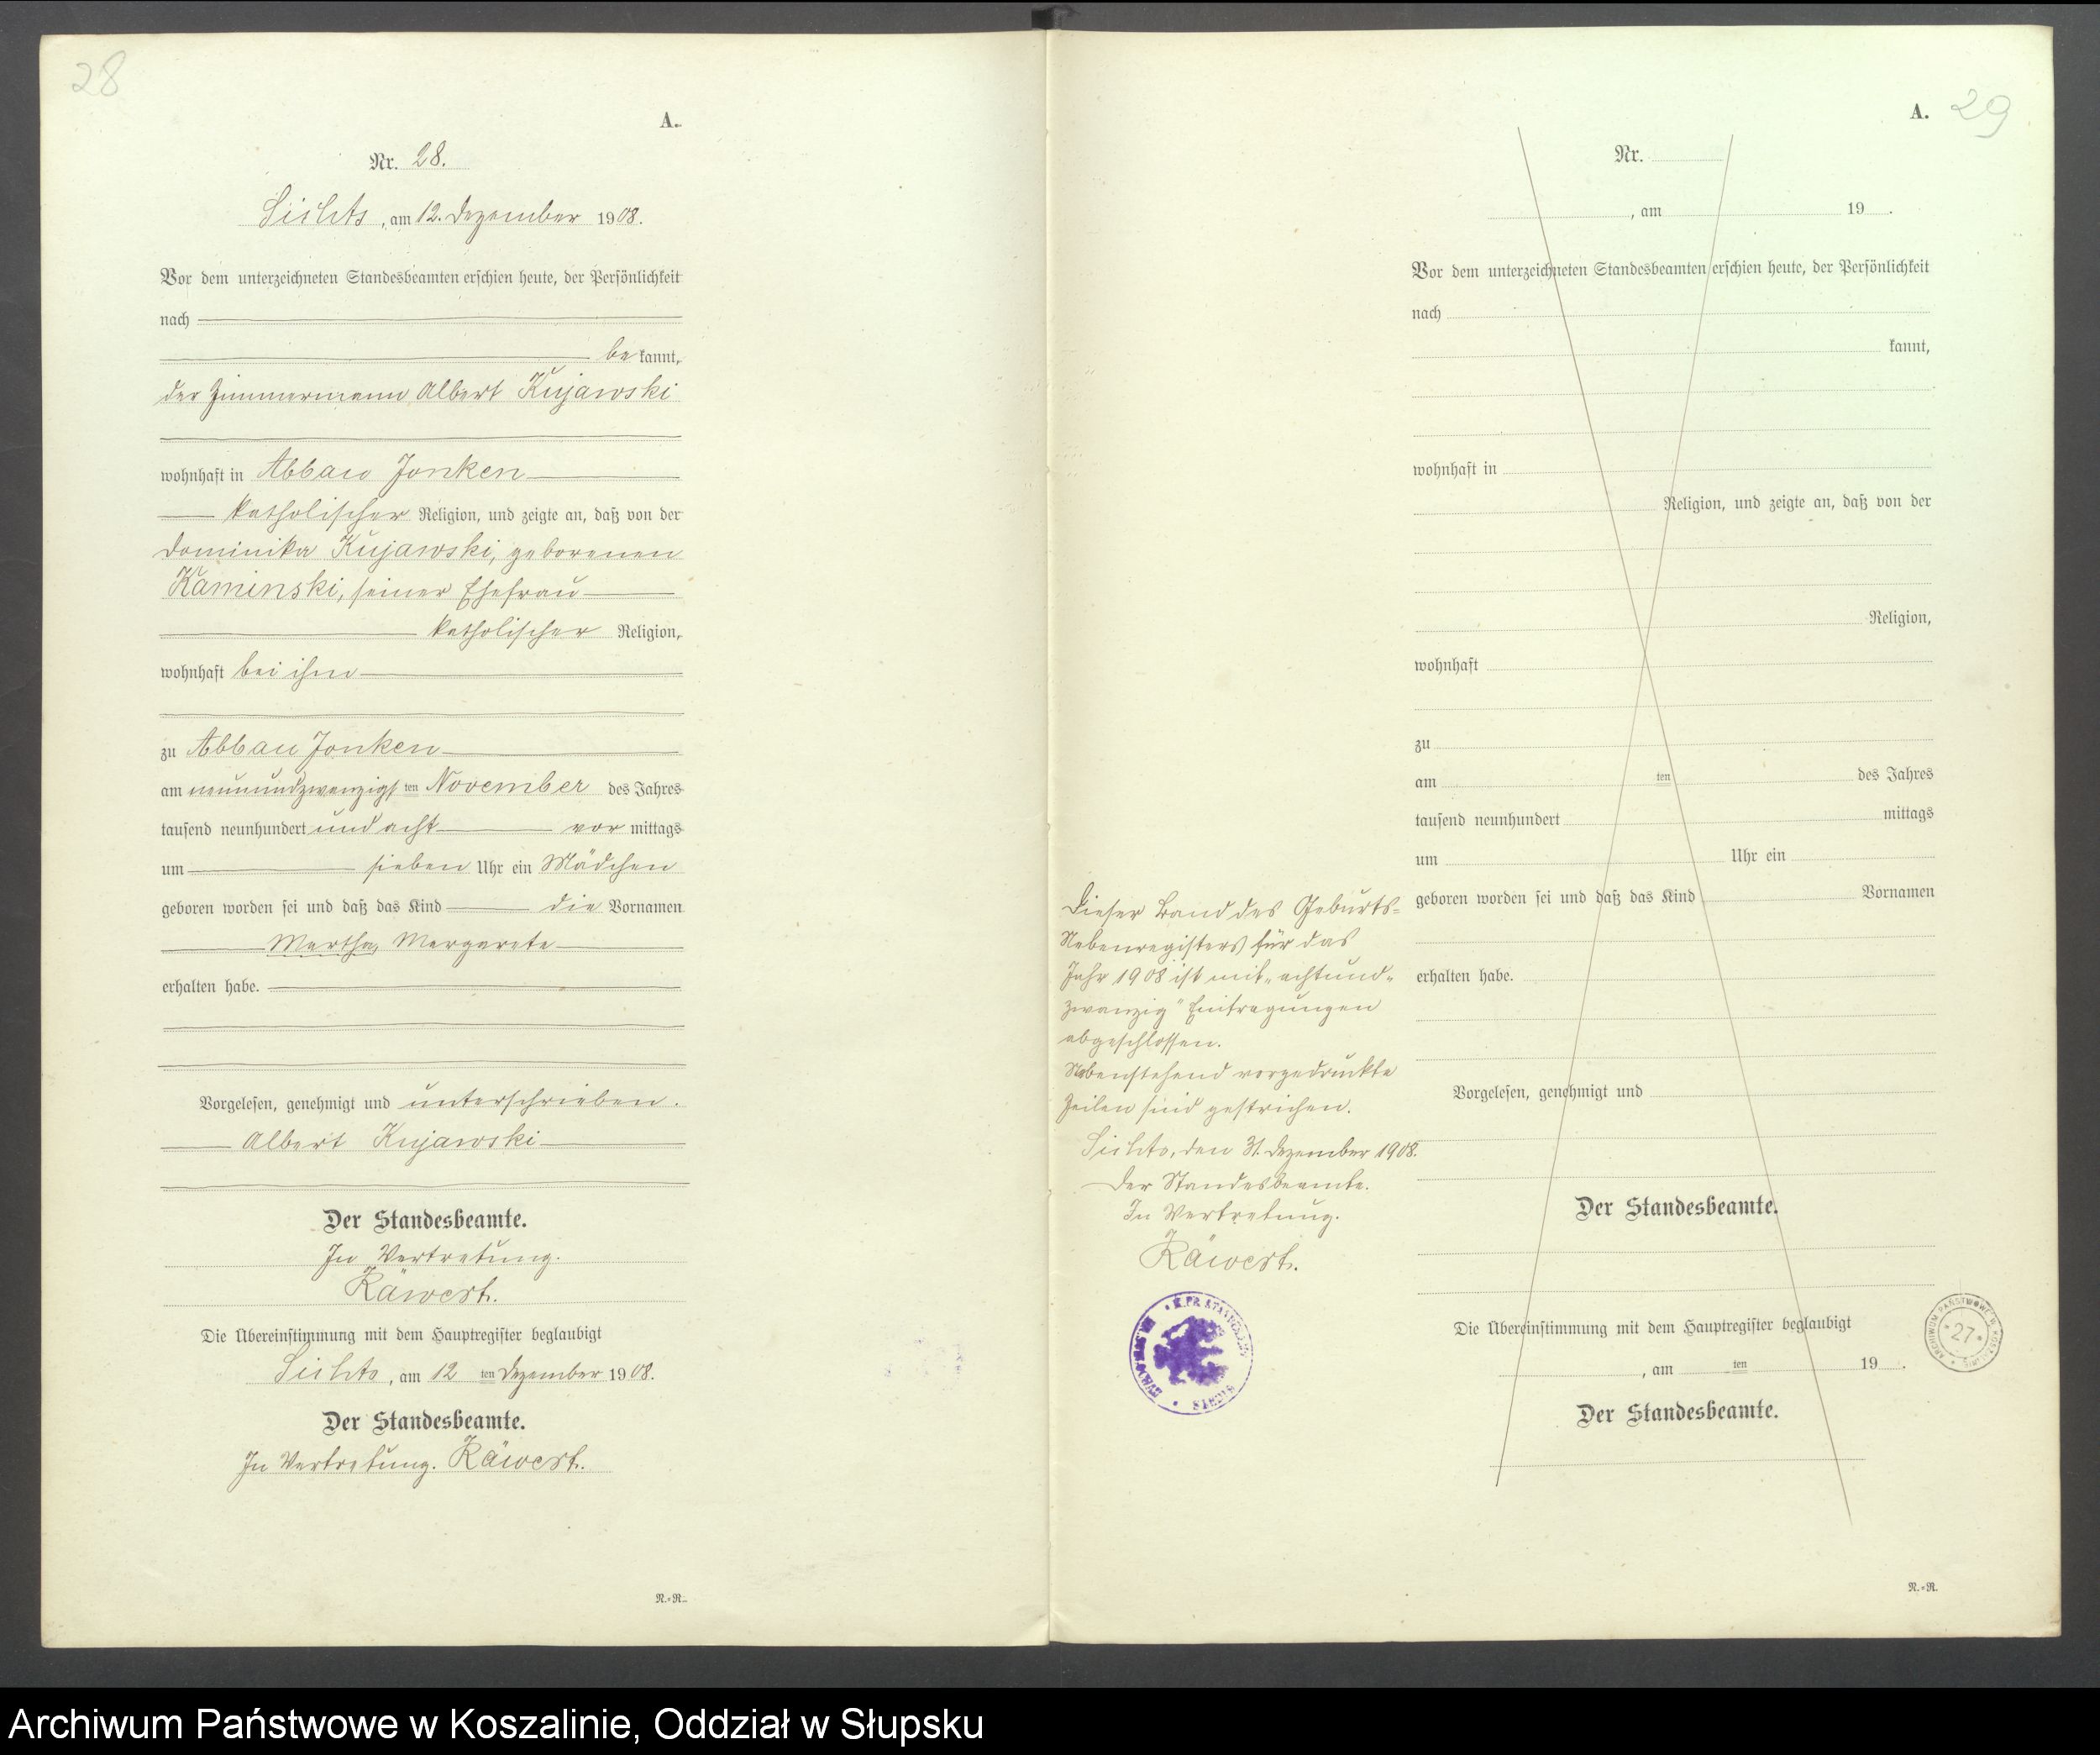 28
A.
Nr. 28.
Sichts, am 12. Dezember 1908.
Vor dem unterzeichneten Standesbeamten erschien heute, der Persönlichkeit
nach
be kannt,
der Zimmermann Albert Kujawski
wohnhaft in Abbau Jonken
katholischer Religion, und zeigte an, daß von der
Dominika Kujawski, geborenen
Kaminski, seiner Ehefrau
katholischer Religion,
wohnhaft bei ihm
zu Abbau Jonken
am neunundzwanzigsten November des Jahres
tausend neunhundert und acht vor mittags
um sieben Uhr ein Mädchen
geboren worden sei und daß das Kind die Vornamen
Martha, Margarete
erhalten habe.
Vorgelesen, genehmigt und unterschrieben.
Albert Kujawski
Der Standesbeamte.
In Vertretung.
Räwert.
Die Übereinstimmung mit dem Hauptregister beglaubigt
Sichts, am 12 ten Dezember 1908.
Der Standesbeamte.
In Vertretung. Räwert.
N.=R.
A. 29
Nr.
, am 19 .
Vor dem unterzeichneten Standesbeamten erschien heute, der Persönlichkeit
nach
kannt,
wohnhaft in
Religion, und zeigte an, daß von der
Religion,
wohnhaft
zu
am ten des Jahres
tausend neunhundert mittags
um Uhr ein
geboren worden sei und daß das Kind Vornamen
erhalten habe.
Vorgelesen, genehmigt und
Der Standesbeamte.
Die Übereinstimmung mit dem Hauptregister beglaubigt
, am ten 19 .
Der Standesbeamte.
N.=R.
Dieser Band des Geburts=
Nebenregisters für das
Jahr 1908 ist mit „achtund=
zwanzig" Eintragungen
abgeschlossen.
Nebenstehend vorgedruckte
Zeilen sind gestrichen.
Sichts, den 31. Dezember 1908.
Der Standesbeamte.
In Vertretung.
Räwert.
ARCHIWUM PAŃSTWOWE W KOSZALINIE
* 27 *
Archiwum Państwowe w Koszalinie, Oddział w Słupsku